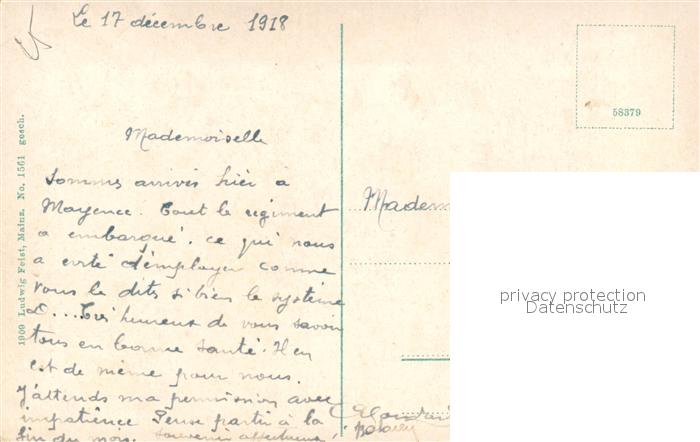 Le 17 décembre 1918
58379
Mademoiselle
Sommes arrivés hier à
Mayence. Tout le régiment
a embarqué, ce qui nous
a évité d'employer comme
vous le dits si bien le système
D....Très heureux de vous savoir
tous en bonne santé. Il en
est de même pour nous.
J'attends ma permission avec
impatience Pense partir à la
fin du mois. Souvenir affectueux
1909 Ludwig Feist, Mainz. No. 1561 gesch.
Madem
privacy protection
Datenschutz